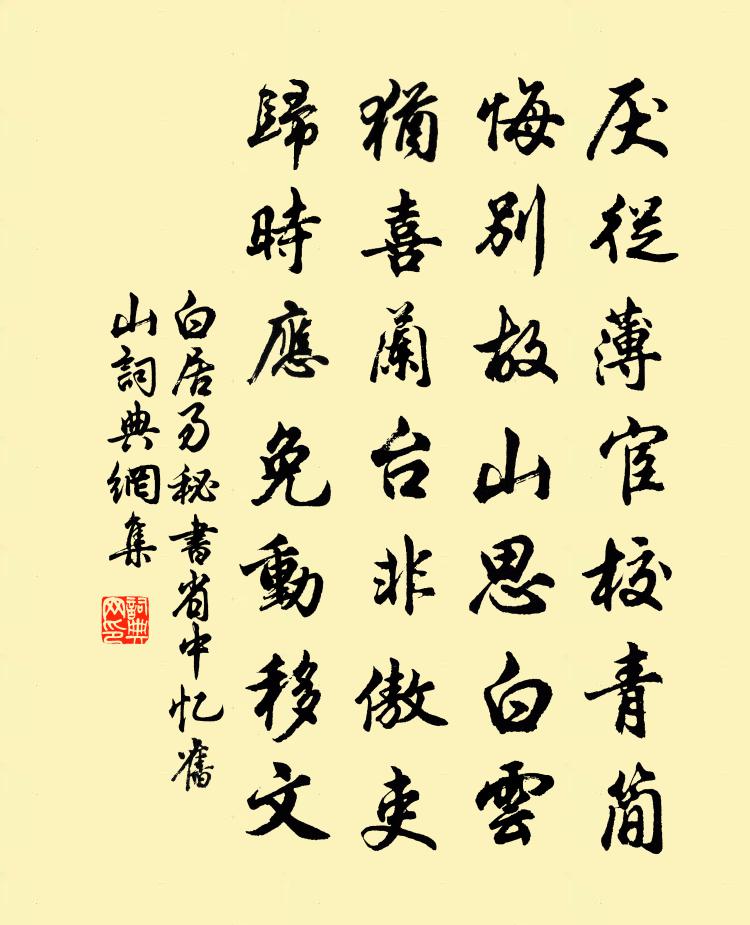 厌從薄宦校青简
悔别故山思白雲
猶喜蘭台非傲吏
歸時應免動移文
白居易秘書省中忆舊
山詞典網集
詞典
网印